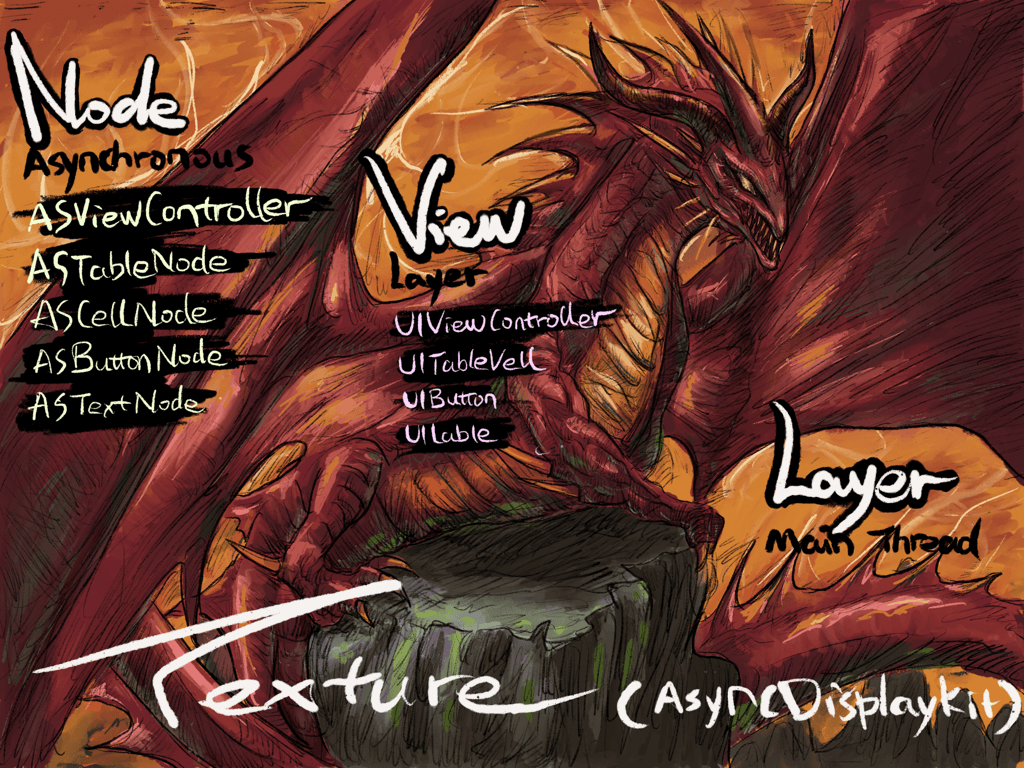 Node
Asynchronous
ASViewController
ASTableNode
ASCellNode
ASButtonNode
ASTextNode
View
Layer
UIViewController
UITableVell
UIButton
UILable
Layer
Main Thread
Texture (AsyncDisplayKit)